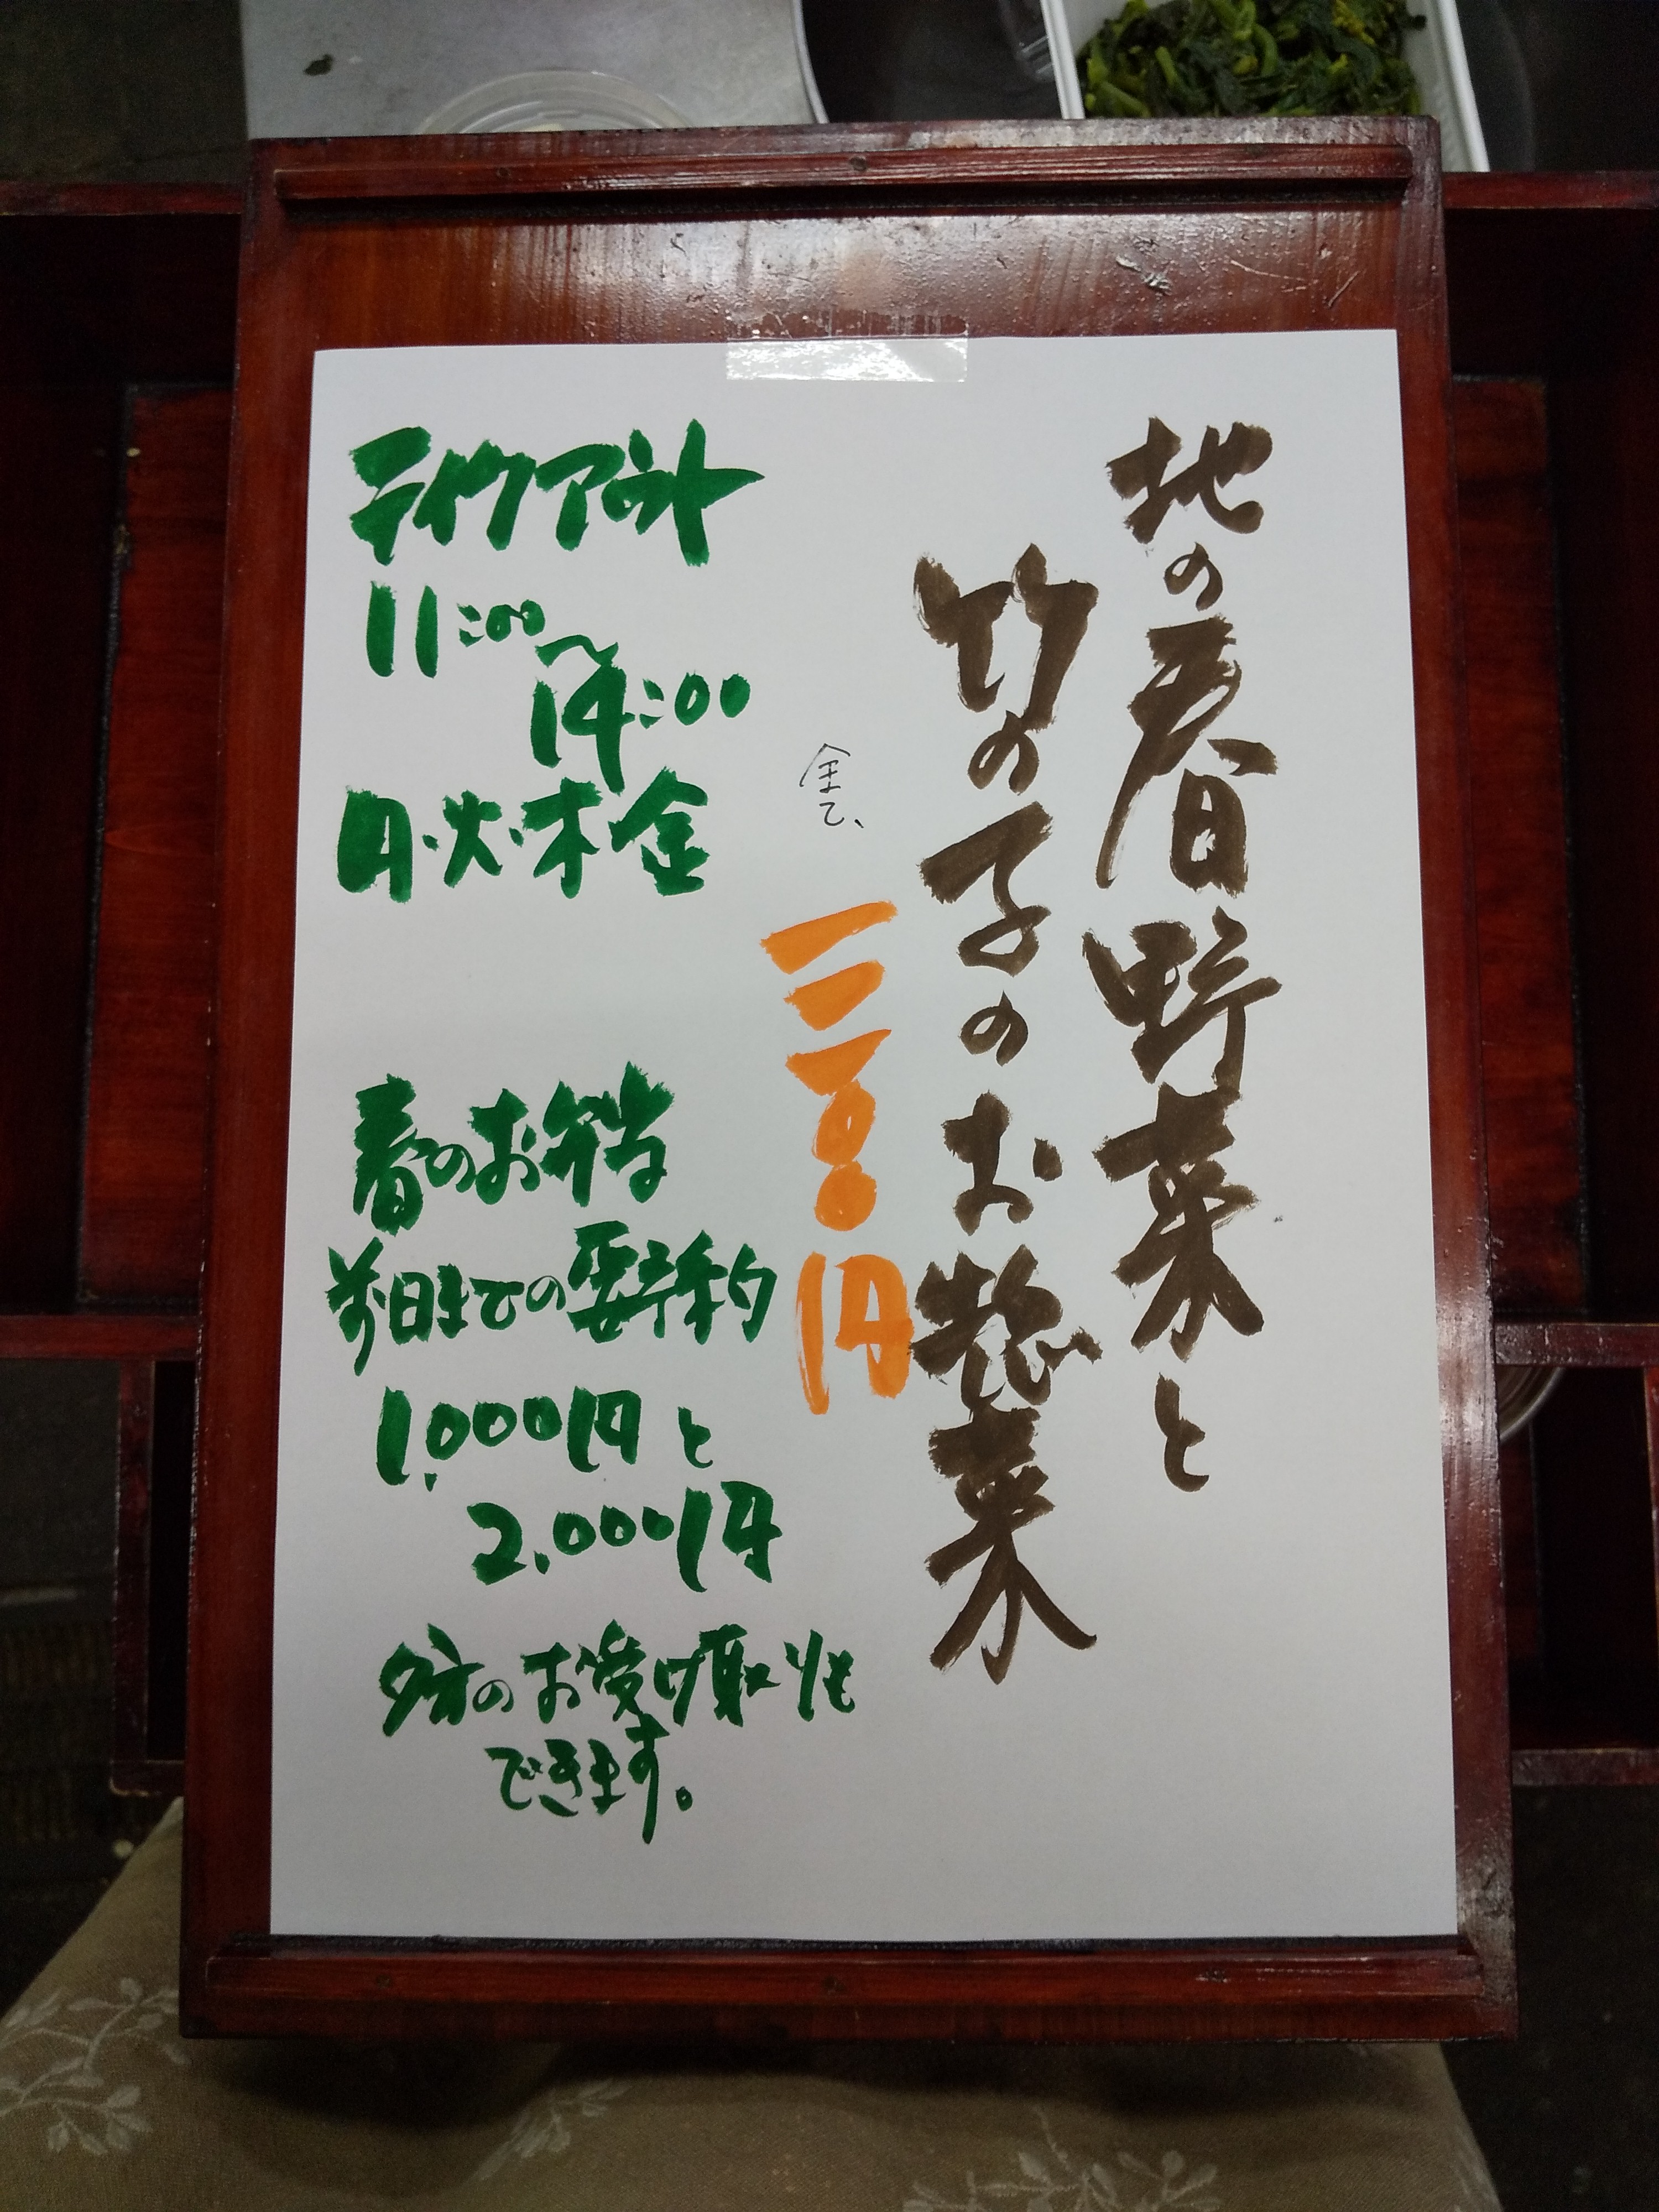 地の春野菜と
竹の子のお惣菜
全て、
三〇〇円
テイクアウト
11:00〜
14:00
月・火・木金
春のお弁当
前日までの要予約
1,000円と
2,000円
夕方のお受け取りも
できます。